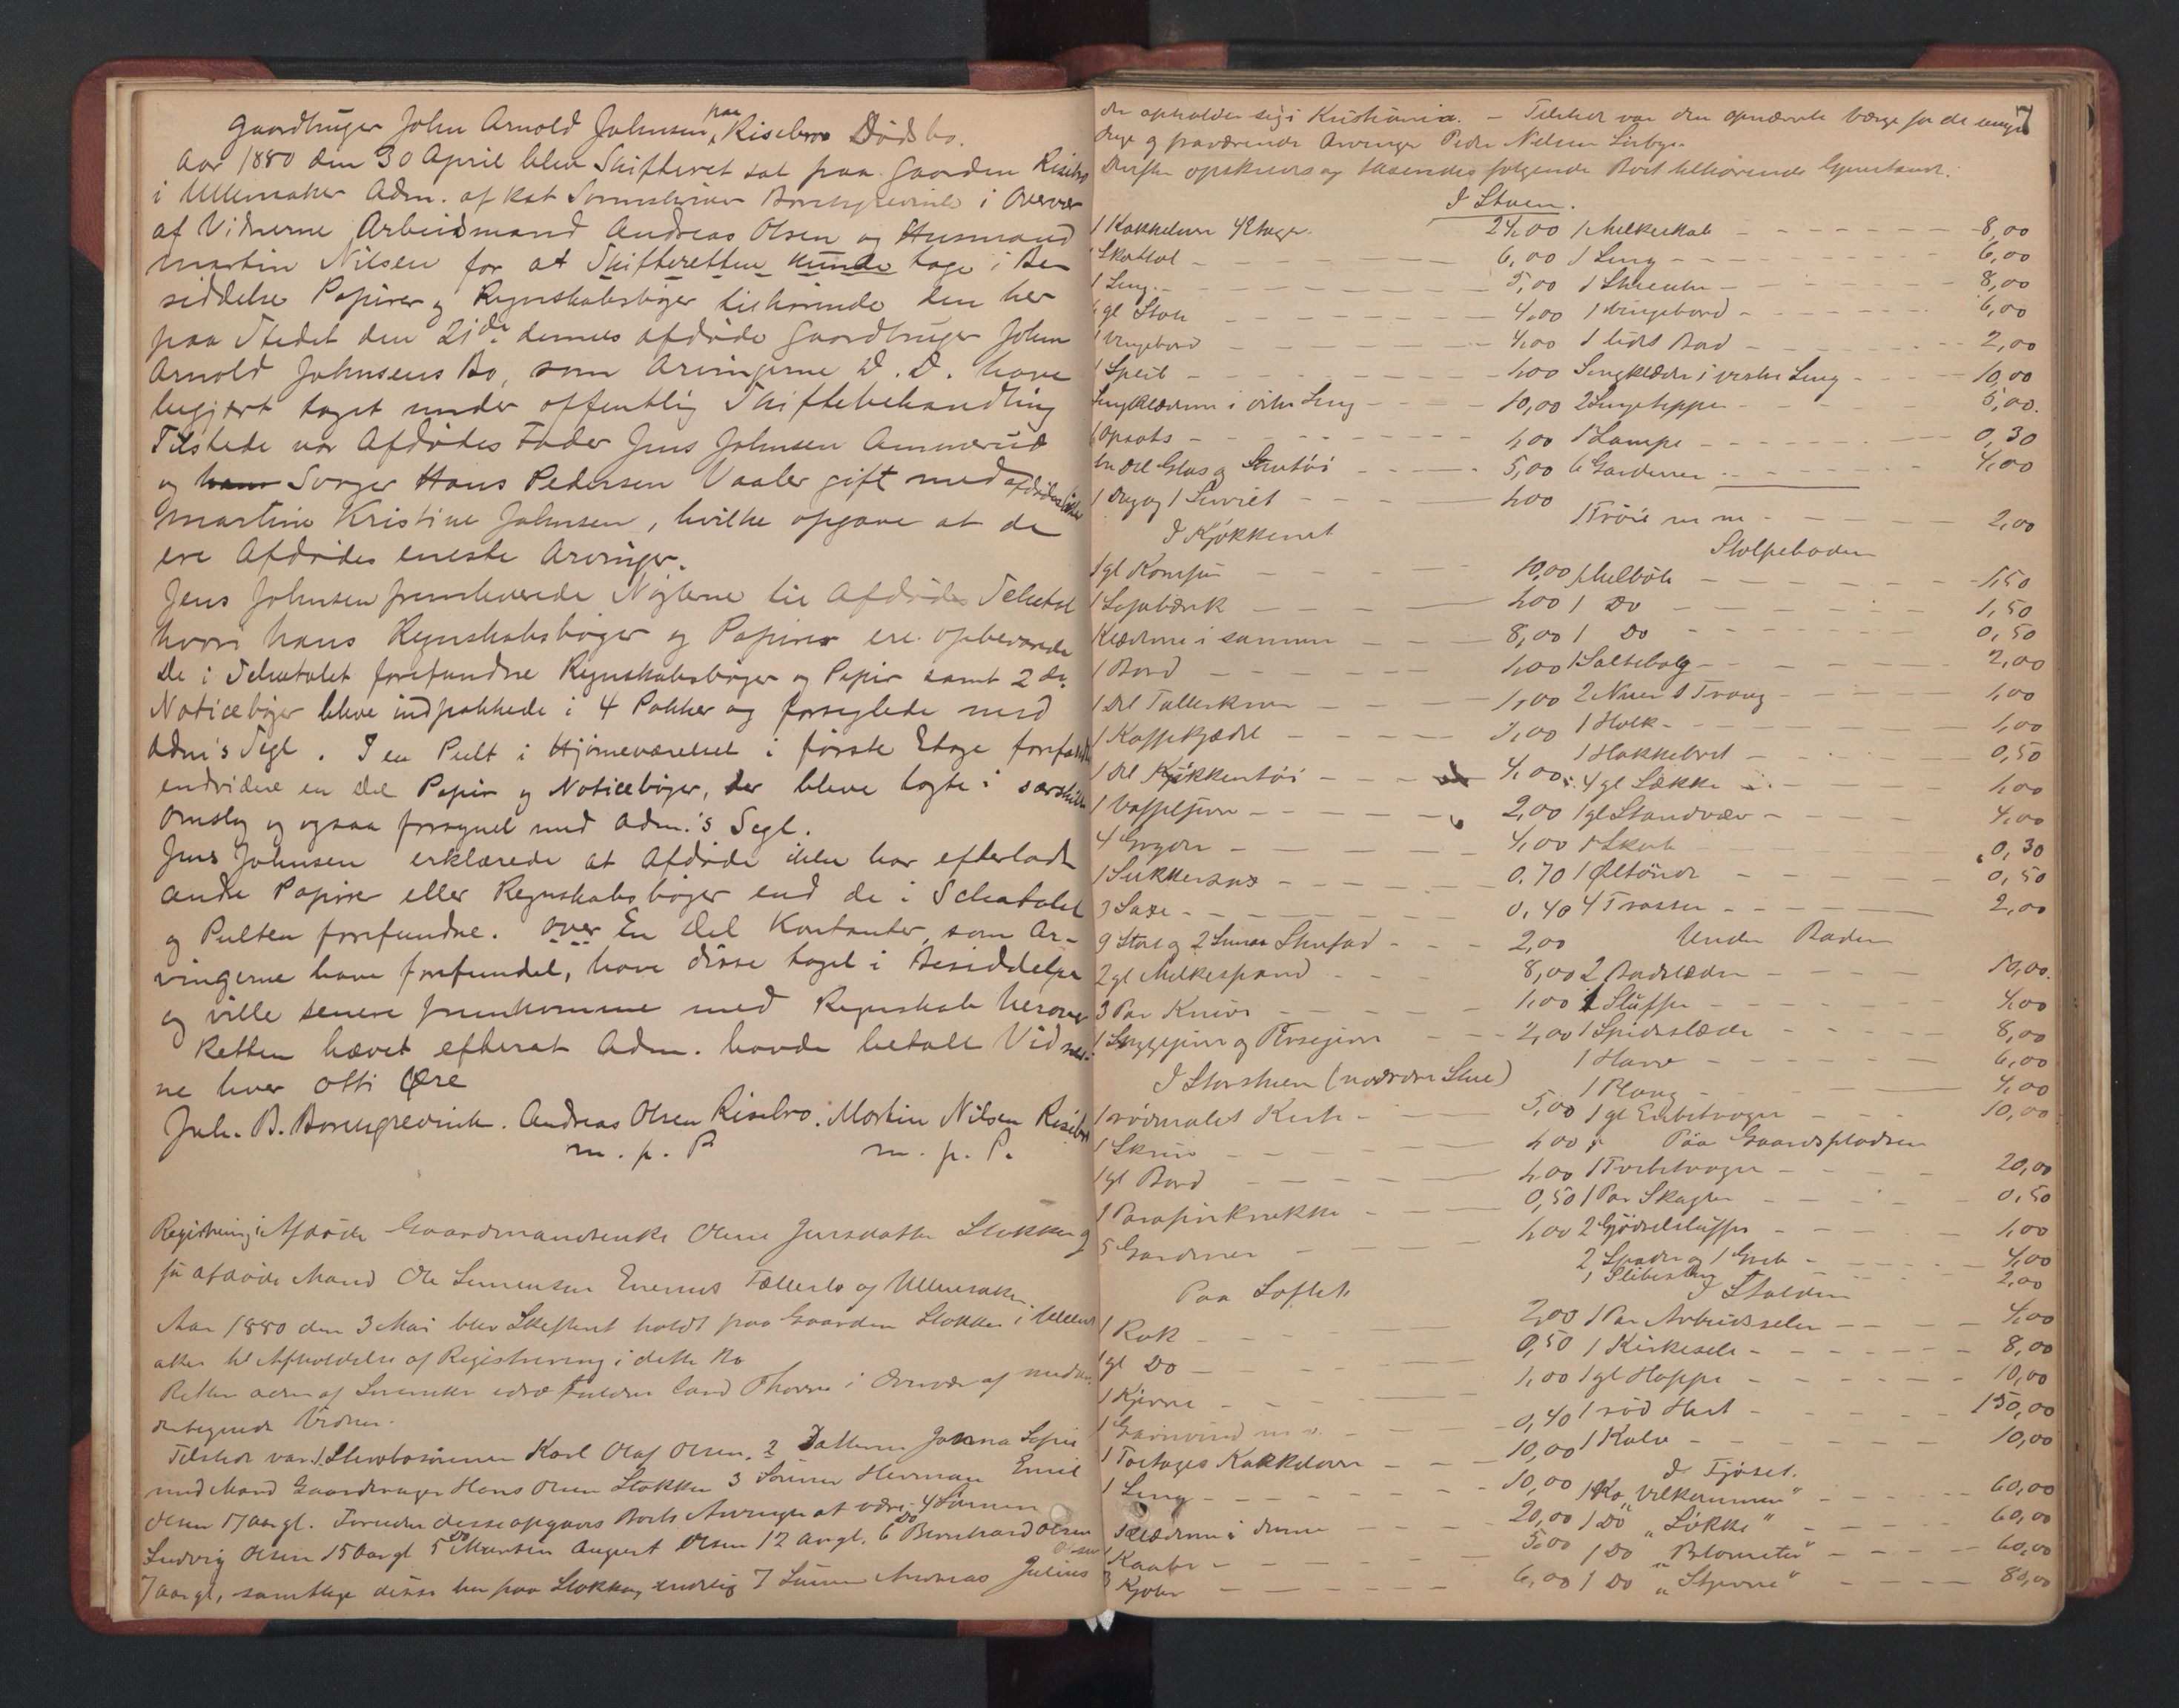 Gaardbruger John Arnold Johnsen paa Risebro Dødsbo.
Aar 1880 den 30 April blev Skifteret sat paa Gaarden Risebro
i Ullensaker Adm. af kst Sorenskriver Borchgrevink i Overvær
af Vidnerne Arbeidsmand Andreas Olsen og Husmand
Martin Nilsen for at Skifteretten kunde tage i Be-
siddelse Papirer og Regnskabsbøger tilhørende den her
paa Stedet den 21de dennes afdøde Gaardbruger John
Arnold Johnsens Bo, som Arvingerne D. D. have
begjært taget under offentlig Skiftebehandling
Tilstede var Afdødes Fader Jens Johnsen Ammerud
og Svoger Hans Pedersen Vaaler gift med afdødes Søster
Martine Kristine Johnsen, hvilke opgave at de
ere Afdødes eneste Arvinger.
Jens Johnsen fremleverede Nøglerne til Afdødes Schatol
hvori hans Regnskabsbøger og Papirer ere opbevarede
De i Schatolet forefundne Regnskabsbøger og Papir samt 2 de
Noticebøger bleve indpakkede i 4 Pakker og forseglede med
Adm's Segl. I en Pult i Hjørneværelset i første Etage forefandtes
endvidere en Del Papir og Noticebøger, der bleve lagte i særskilt
Omslag og ogsaa forsynet med Adm.'s Segl.
Jens Johnsen erklærede at Afdøde ikke har efterladt
andre Papirer eller Regnskabsbøger end de i Schatolet
og Pulten forefundne. over En Del Kontanter, som Ar-
vingerne have forefundet, have disse taget i Besiddelse
og ville senere fremkomme med Regnskab herover
Retten hævet efterat Adm. havde betalt Vidner-
ne hver otti Øre
Joh. B. Borchgrevink. Andreas Olsen Risebro. Martin Nilsen Risebro
m. p. P. m. p. P.
Registrering i Afdøde Gaardmandsenke Olene Jensdatter Stokker og
før afdøde Mand Ole Fællesbo og Ullensaker.
Aar 1880 den 3 Mai blev Skifteret holdt paa Gaarden Stokker i Ullens
aker til Afholdelse af Registrering i dette Bo
Retten adm af i Overvær af undtn.
dertegnede Vidner.
Tilstede var 1 Stervbosønnen Karl Olaf Olsen, 2 Datteren Sofie
med Mand Gaardbruger Hans Olsen Stokker 3 Sønnen Herman Emil
Olsen 17 aar gl. Foruden disse opgaves Boets Arvinger at være: 4 Sønnen
Ludvig Olsen 15 Aar gl 5 Do August Olsen 12 aar gl. 6 Do Bernhard Olsen
7 aar gl, samtlige disse her paa Stokker, endelig 7 Sønnen Andreas Julius Olsen
7
der opholder sig i Kristiania. – Tilstede var den opnævnte Værge for de umyn
dige og fraværende Arvinger Peder Nilsen
Derefter opskreves og taxeredes følgende Boet tilhørende Gjenstande:
I Stuen.
1 Kakkelovn 4 Etager 24,00 1 Melkeskab 8,00
1 Skatol 6,00 1 Seng 6,00
1 Seng 5,00 8,00
6 gl Stole 4,00 1 Vingebord 6,00
1 Vingebord 4,00 1 lidet Bord 2,00
1 Speil 1,00 Sengklæder i Seng 10,00
Sengklæderne i Seng 10,00 2 Sengetepper 6,00
1 Opsats 1,00 1 Lampe 0,30
En Del Glas og Stentøi 5,00 6 Gardiner 4,00
1 Dug og 1 Serviet 1,00
1 Trøie m m 2,00
I Kjøkkenet Stolpeboden
1 gl Komfur 10,00 1 Melbøle 1,50
1 Sofabænk 2,00 1 Do 1,50
Klæderne i samme 8,00 1 Do 0,50
1 Bord 1,00 1 Saltebalg 2,00
1 Del Tallerkener 1,00 1,00
1 Kaffekjedel 1,00 1 Holk 1,00
1 Del Kjøkkentøi 4,00 1 Hakkebret 0,50
4 gl Sække 1,00
1 Vaffeljern 2,00 1 gl 4,00
4 Gryder 4,00 0,30
1 Sukkersax 0.70 1 Øltønde 0,50
3 Saxe 0,40 4 2,00
9 2,00 Under Boden
2 gl Melkespand 8,00 2 10,00
3 Par Knive 1,00 1 Sluffe 4,00
2,00 1 Spidsslæde 8,00
1 Harv 6,00
I Storstuen (nordre Stue) 1 Plog 4,00
1 rødmalet Kiste 5,00 1 gl Enbetvogn 10,00
1 Skrin 1,00 Paa Gaardspladsen
1 gl Bord 4,00 1 Tvebetvogn 20,00
1 Parafinkrukke 0,50 1 Par Skagler 0,50
5 Gardiner 1,00 2 Gjødselsluffer 1,00
2 Spader og 1 Greb 4,00
1 Slibesten 2,00
Paa Loftet I Stalden
1 Rok 2,00 1 Par Arbeidsseler 4,00
1 gl Do 0,50 1 Kirkesele 8,00
1 Kjerne 1,00 1 gl Hoppe 10,00
1 Garnvind m v. 0,40 1 rød Hest 150,00
1 Toetages Kakkelovn 10,00 1 Kalv 10,00
I Fjøset.
1 Seng 10,00 1 Ko „Velkommen" 60,00
Klæderne i denne 20,00 1 Do „Løkke" 60,00
1 Kaabe 5,00 1 Do 60,00
3 Kjoler 6,00 1 Do „Stjerne" 80,00